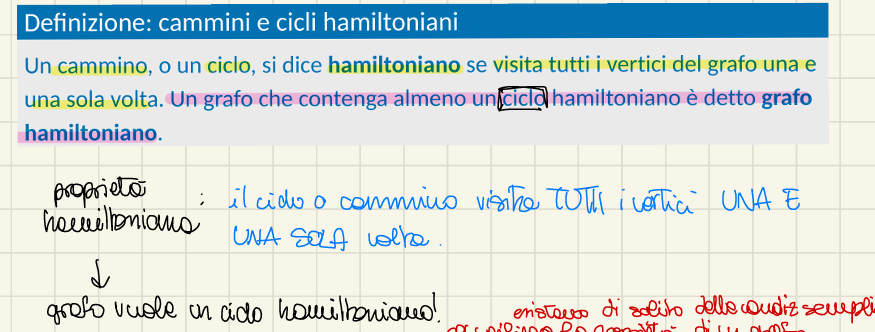 Definizione: cammini e cicli hamiltoniani
Un cammino, o un ciclo, si dice hamiltoniano se visita tutti i vertici del grafo una e
una sola volta. Un grafo che contenga almeno un ciclo hamiltoniano è detto grafo
hamiltoniano.
proprietà
hamiltoniana :
il ciclo o cammino visita TUTTI i vertici UNA E
UNA SOLA volta.
↓
grafo vuole un ciclo hamiltoniano!
esistono di solito delle condiz sempli